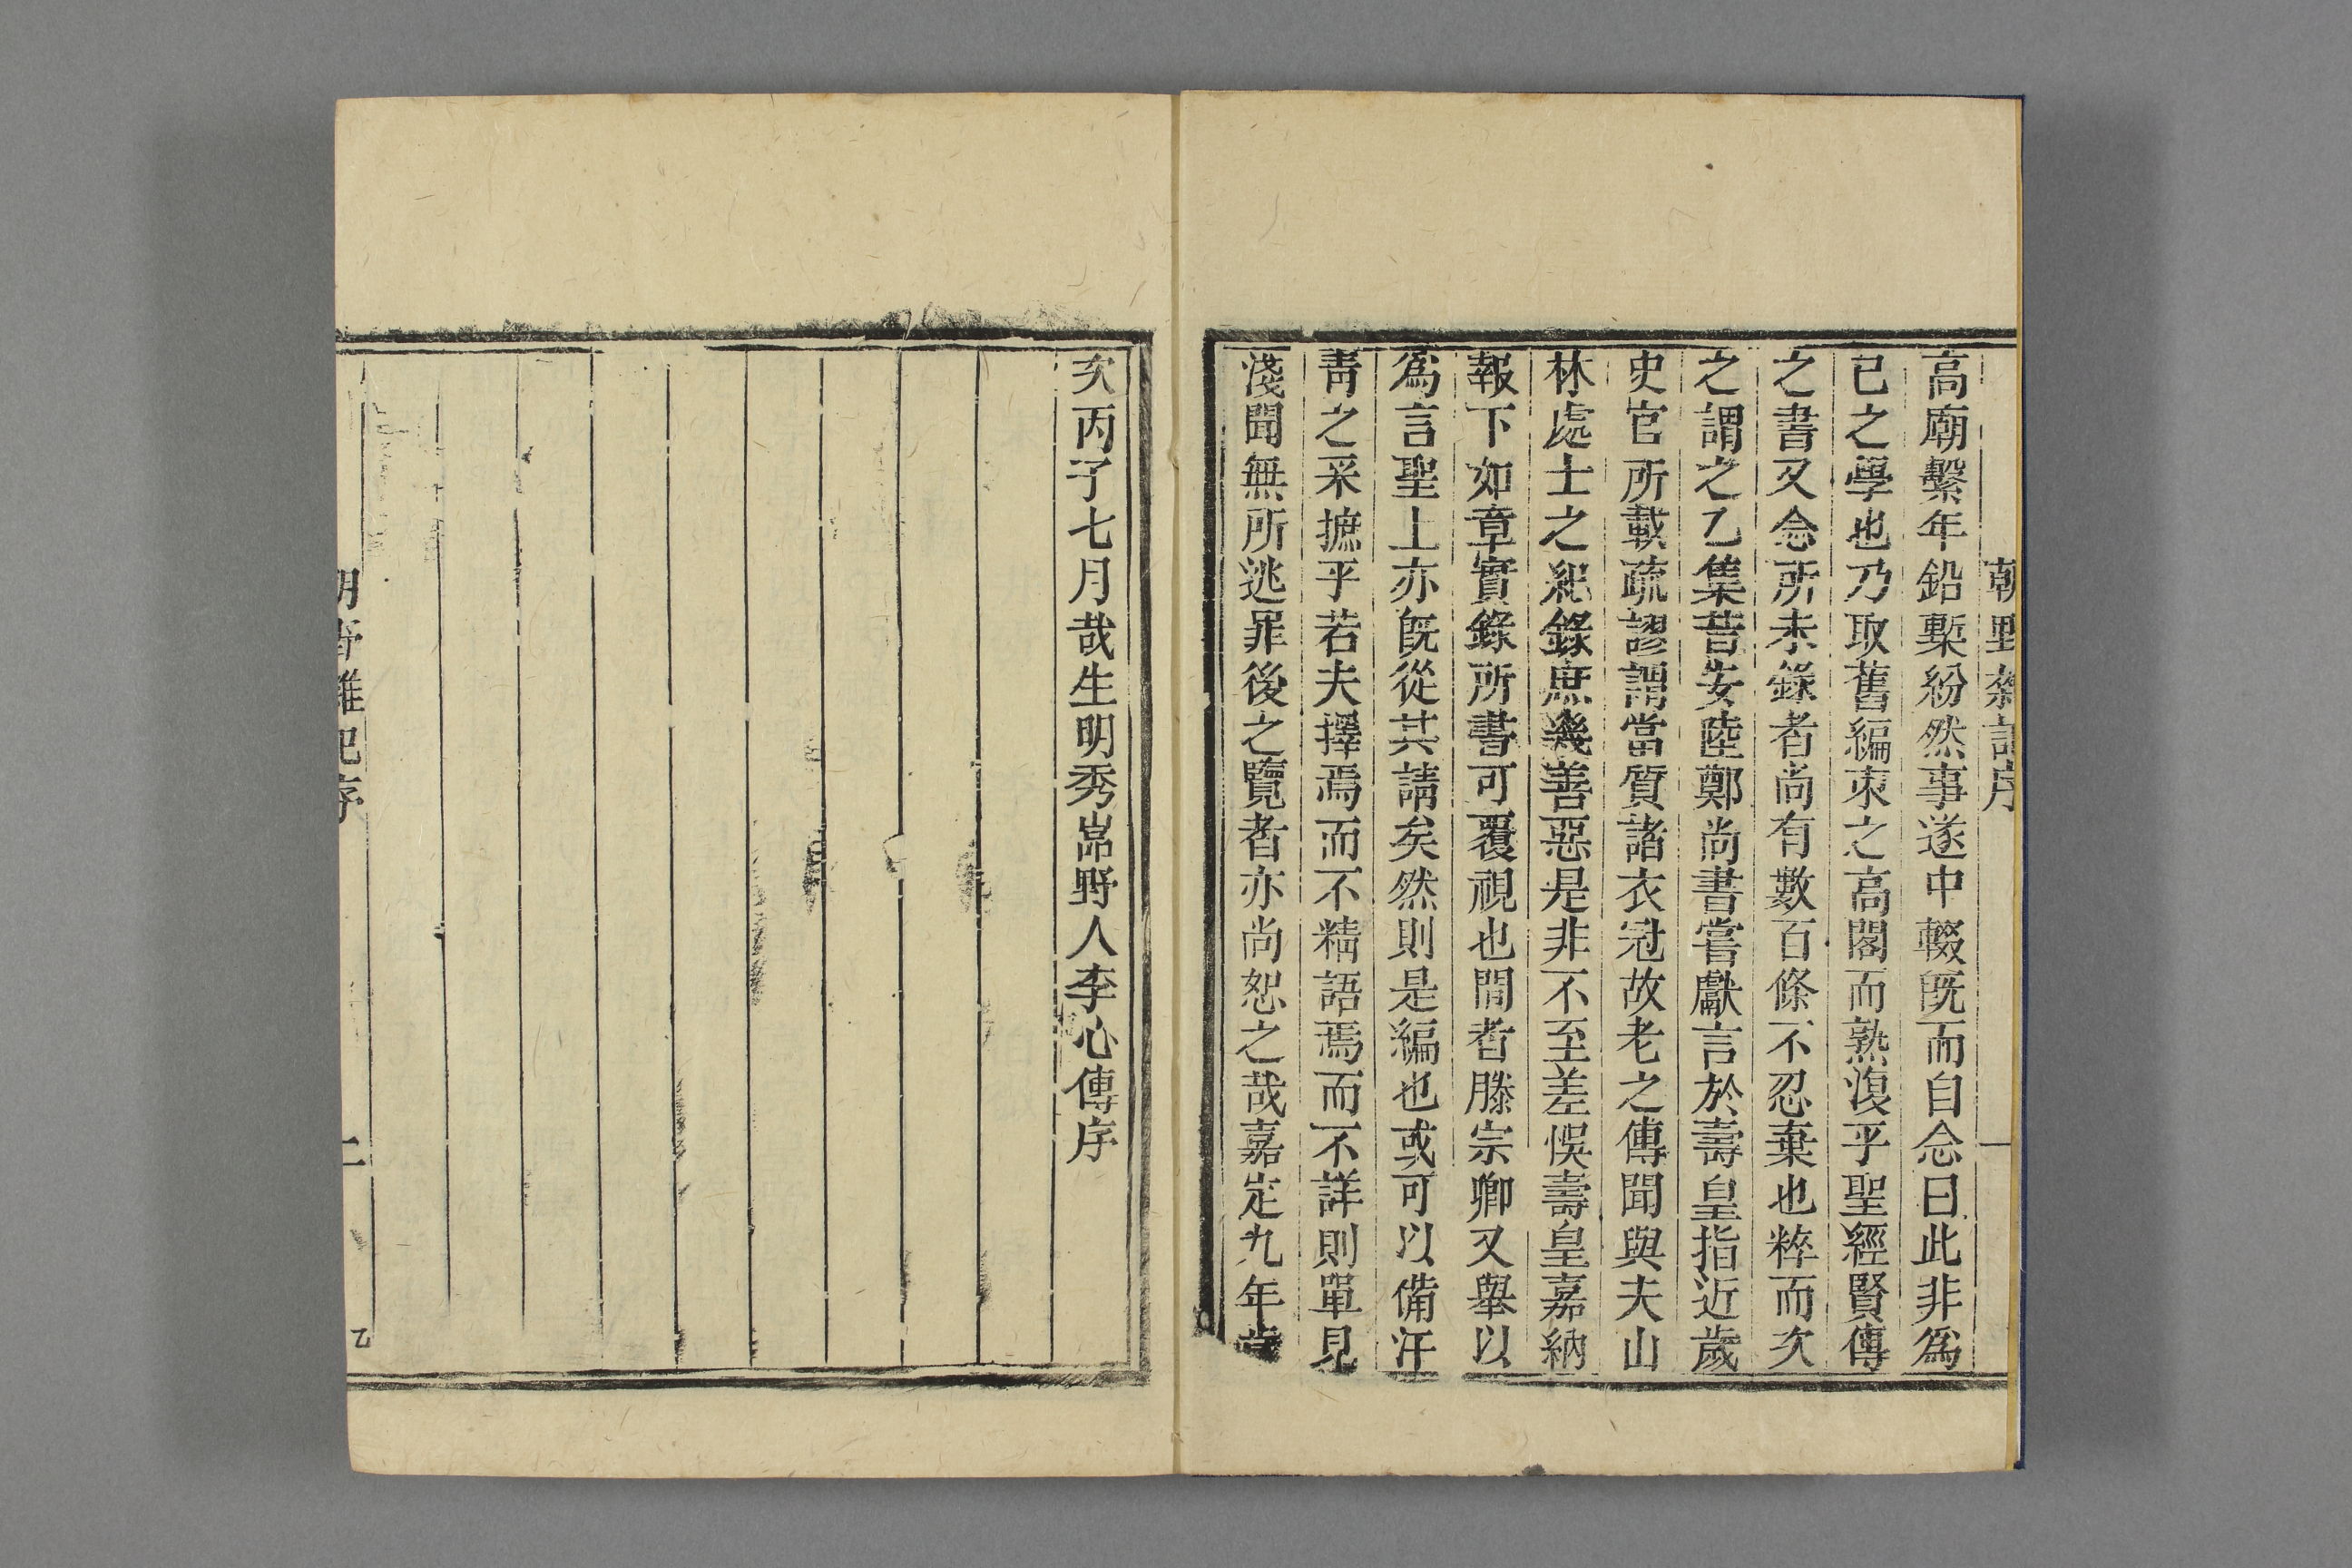 朝野雜記序 一
高廟繫年鉛槧紛然事遂中輟既而自念曰此非爲
已之學也乃取舊編束之高閣而熟復乎聖經賢傳
之書又念所未錄者尚有數百條不忍棄也粹而次
之謂之乙集昔安陸鄭尚書嘗獻言於壽皇指近歲
史官所載疏謬謂當質諸衣冠故老之傳聞與夫山
林處士之紀錄庶幾善惡是非不至差悞壽皇嘉納
報下如章實錄所書可覆視也間者滕宗卿又舉以
爲言聖上亦既從其請矣然則是編也或可以備汗
靑之采摭乎若夫擇焉而不精語焉而不詳則單見
淺聞無所逃罪後之覽者亦尚恕之哉嘉定九年歲
次丙子七月哉生明秀嵓野人李心傳序
朝野雜記序 二 乙